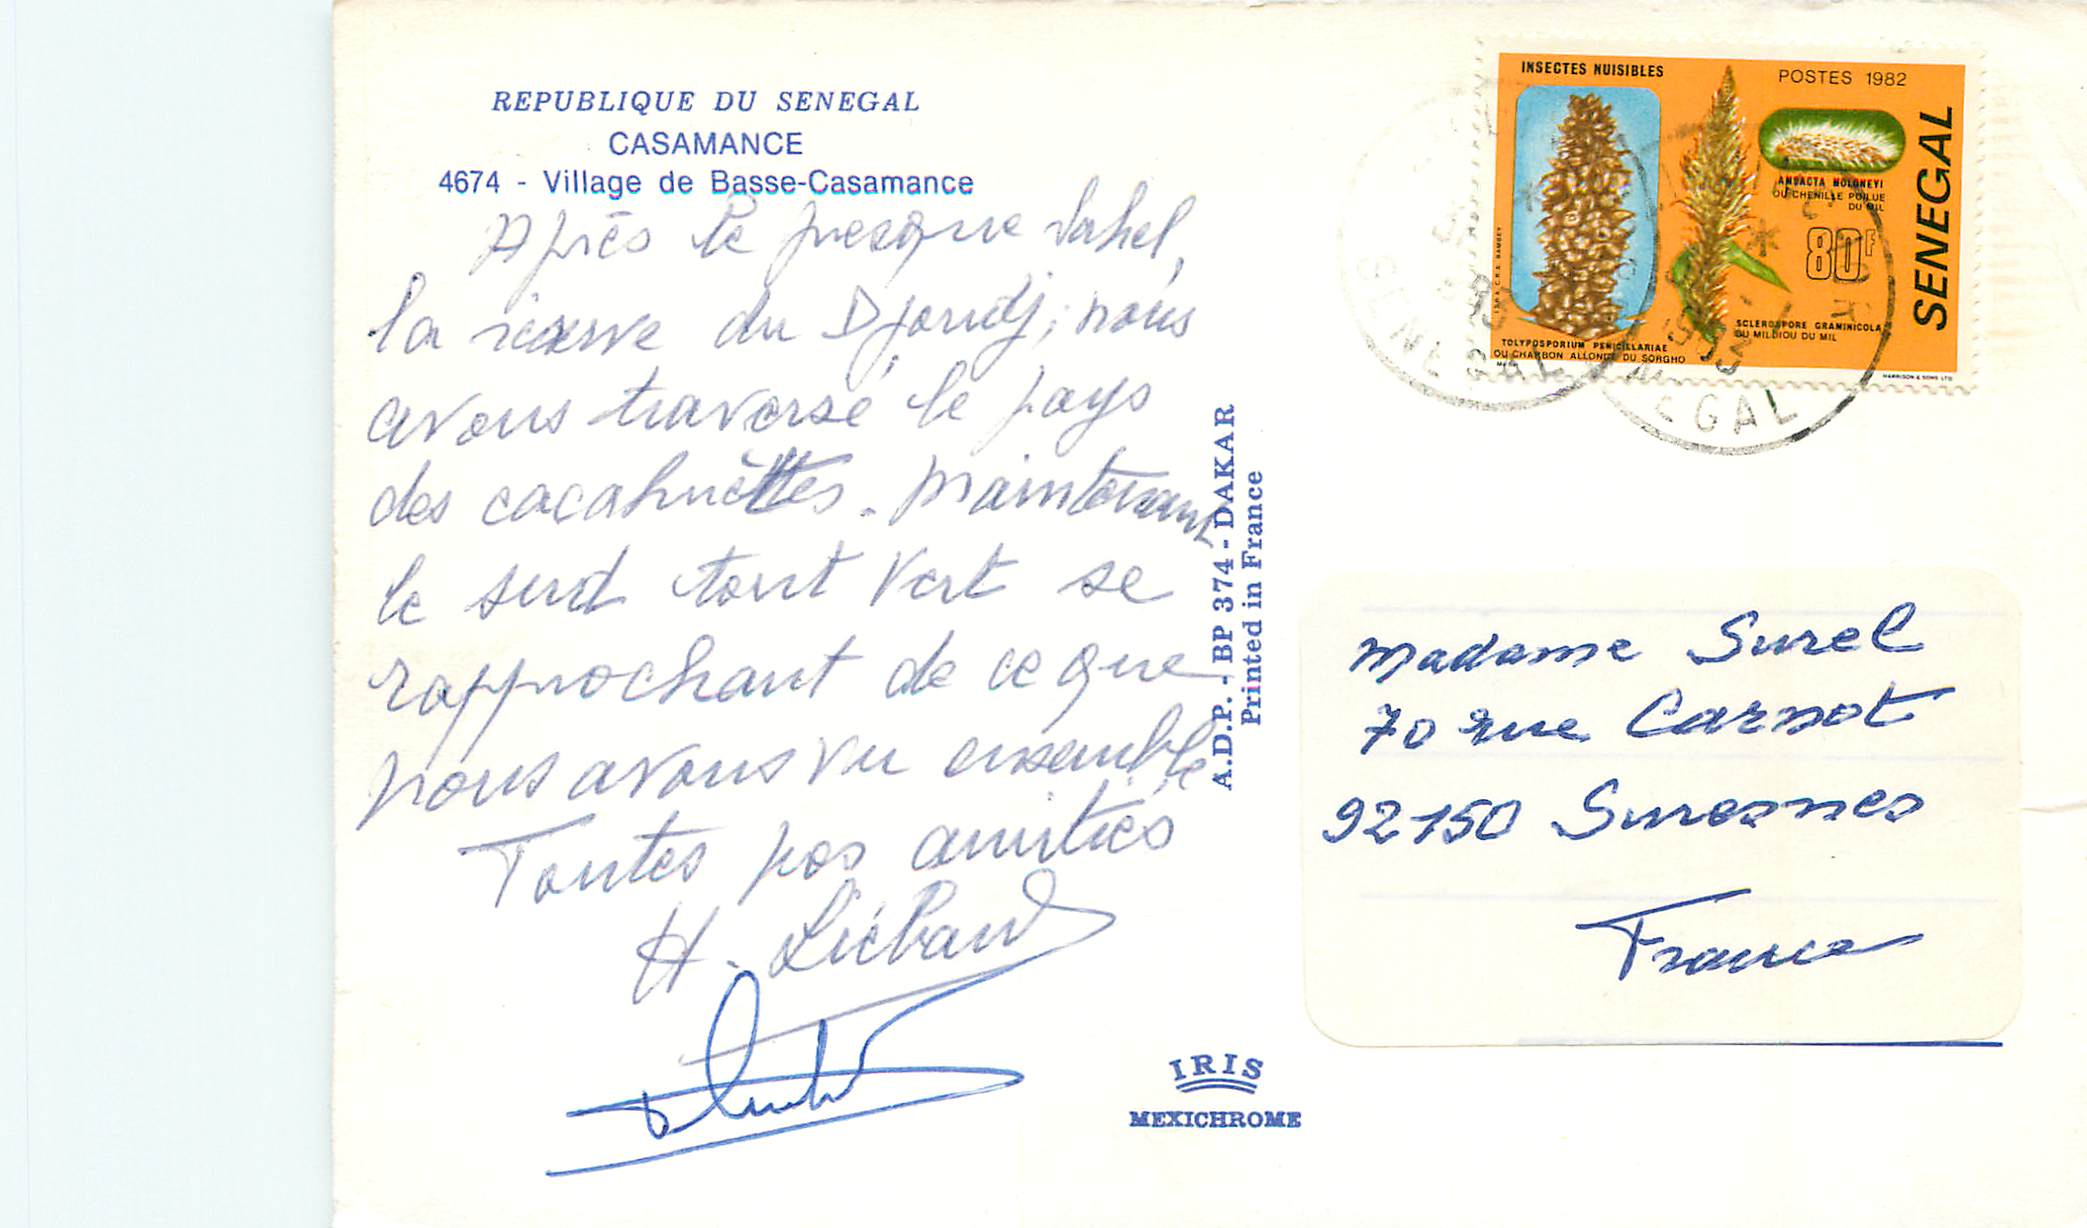 REPUBLIQUE DU SENEGAL
CASAMANCE
4674 - Village de Basse-Casamance
Après le presque Sahel,
la réserve du Djoudj, nous
avons traversé le pays
des cacahuèttes. Maintenant
le sud tout vert se
rapprochant de ce que
nous avons vu ensemble
Toutes nos amitiés
H. Liébaud
A.D.P. - BP 374 - DAKAR
Printed in France
IRIS
MEXICHROME
INSECTES NUISIBLES
POSTES 1982
SENEGAL
AMSACTA MOLONEYI
OU CHENILLE POILUE
DU MIL
80F
SCLEROSPORE GRAMINICOLA
OU MILDIOU DU MIL
TOLYPOSPORIUM PENICILLARIAE
OU CHARBON ALLONGE DU SORGHO
HARRISON & SONS LTD
SENEGAL
1983
EGAL
Madame Surel
70 rue Carnot
92150 Suresnes
France